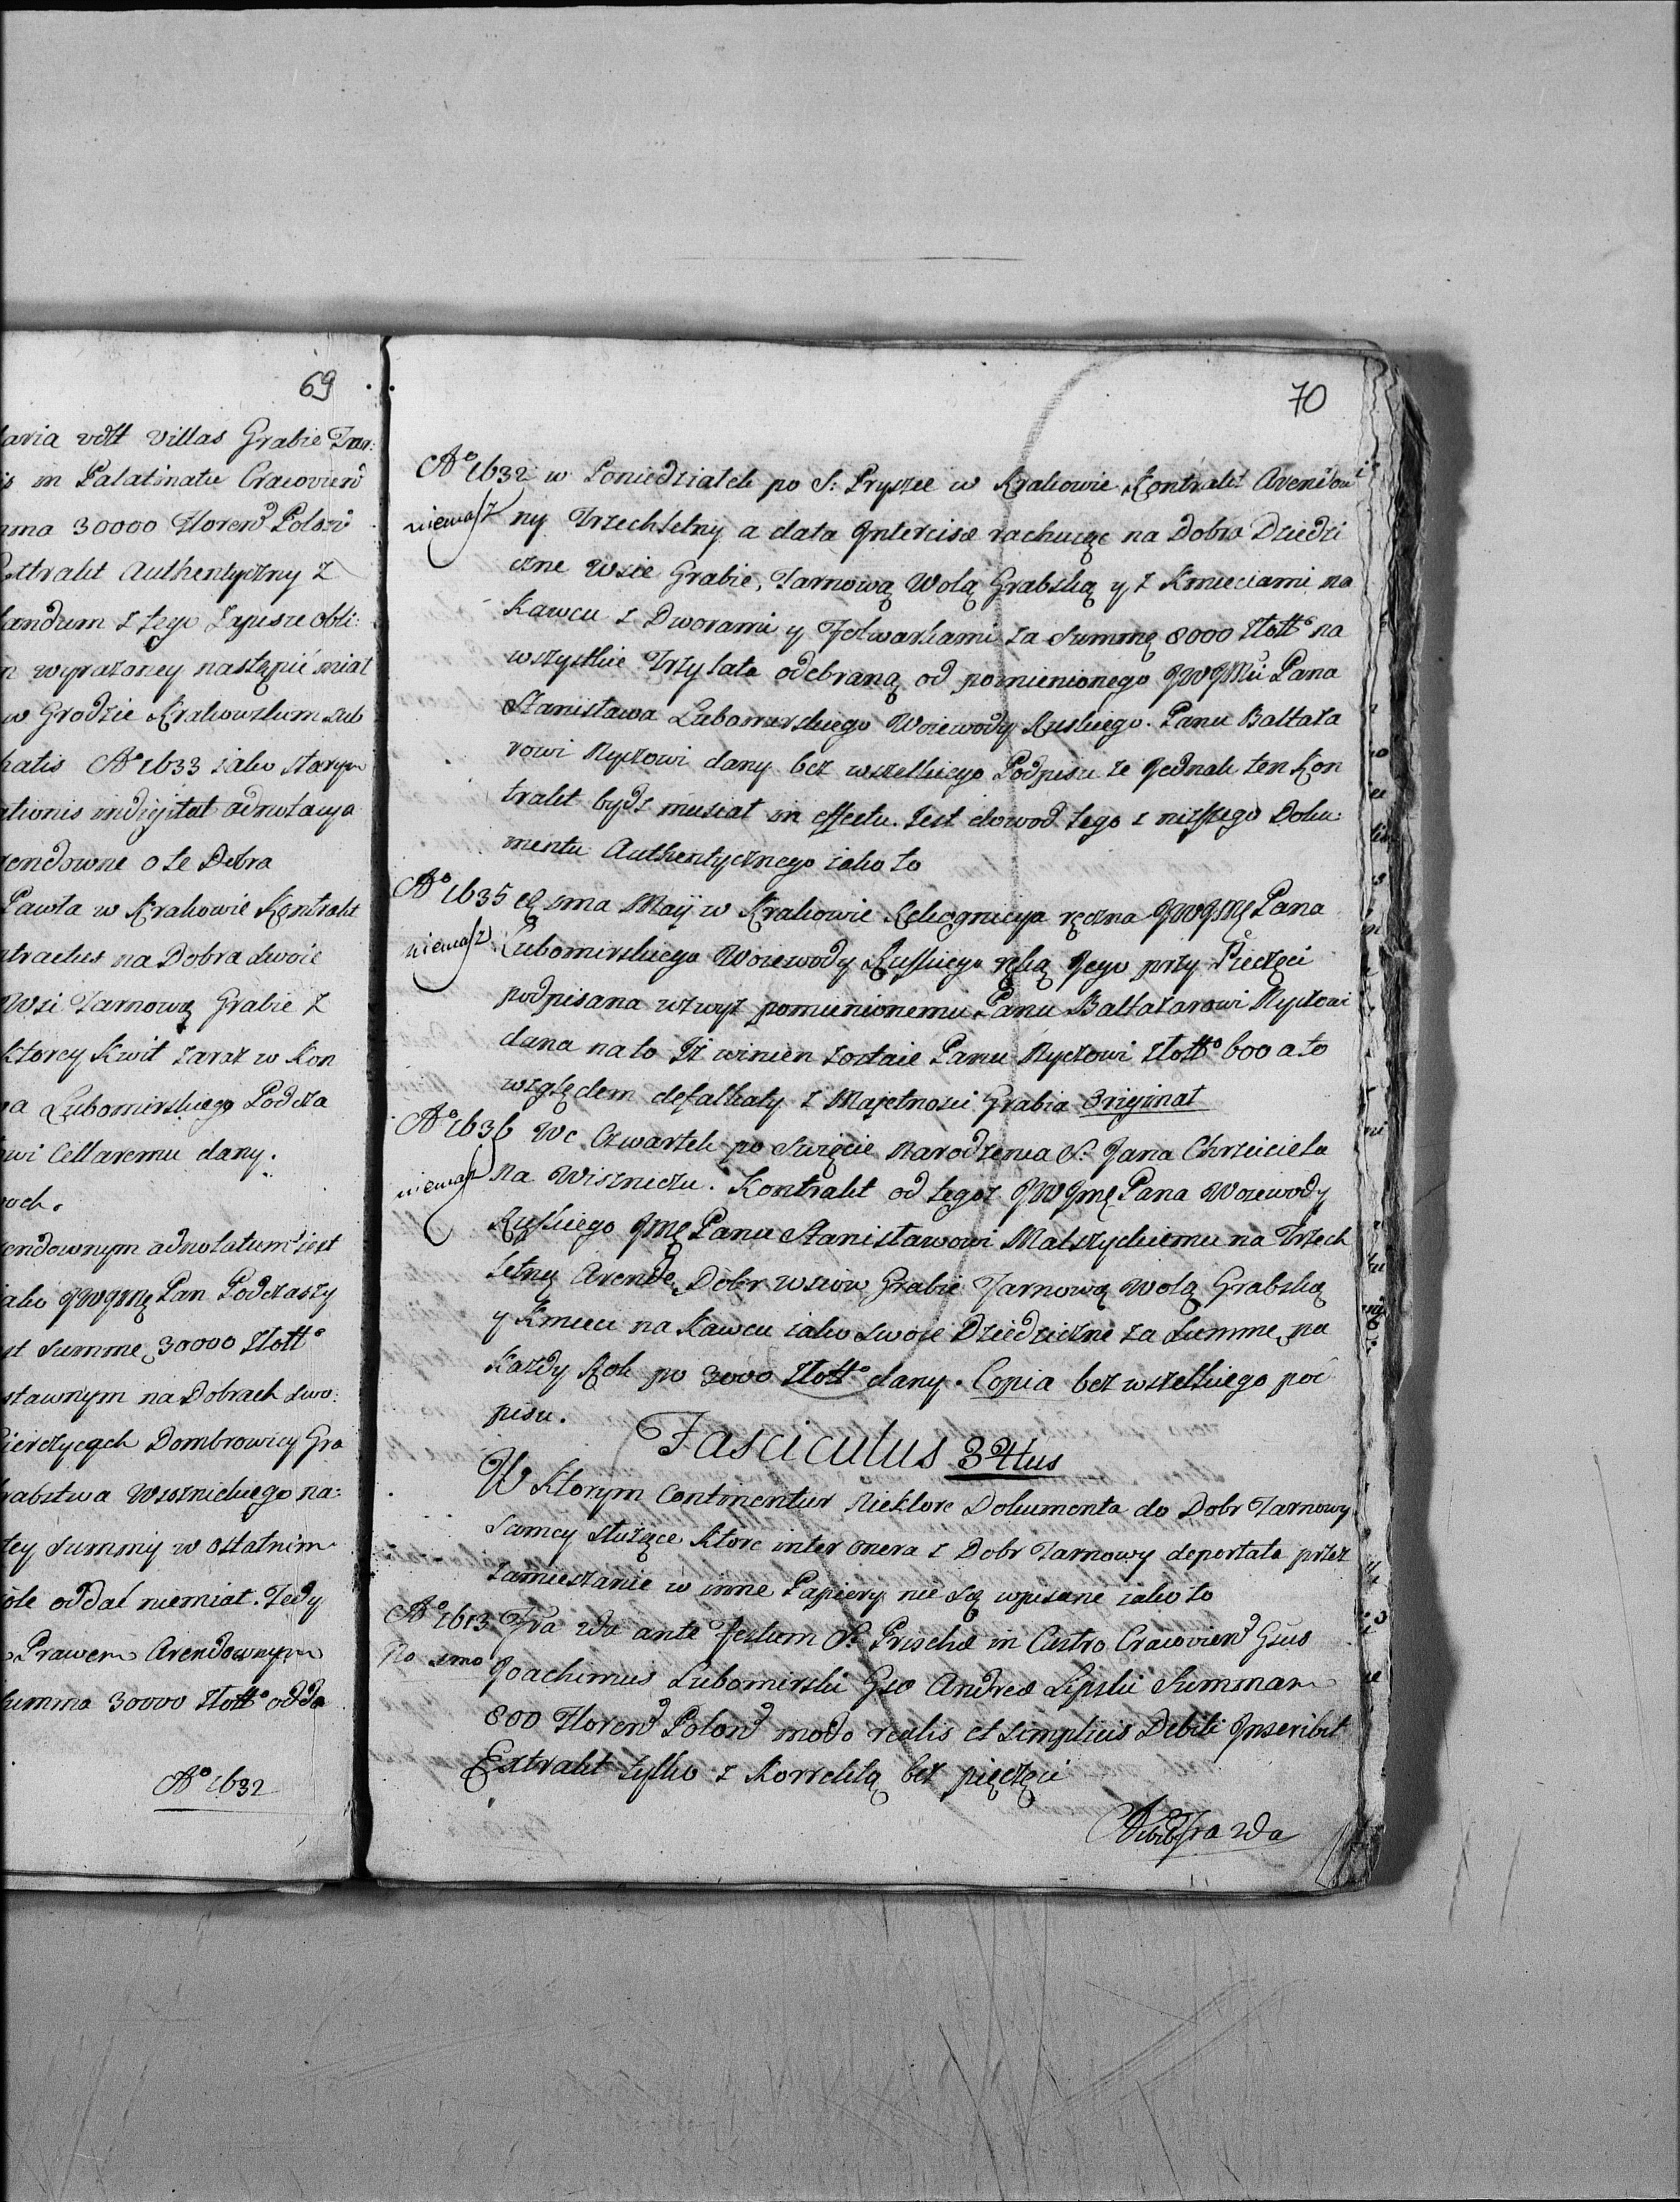 69
laria vdtt villas Grabie Tar:
is in Palatinatu Cracovien
ma 30000 Floren Polon
Extrakt Authentyczny z
landum z tego Zapisu obli:
n wyrażoney nastąpić miał
w Grodzie Krakowskum sub
hatis Aº 1633 iako starym
ationis indigitat adnotacya
rendowne o te Dobra
Pawła w Krakowie Kontrakt
ntractus na Dobra dwoie
Wsi Tarnową Grabie z
ktorey Kwit zaraz w Kon
a Lubomirskiego Podcza
owi Cellaremu dany.
och.
endownym adnotatum iest
iako JWJmę Pan Podczaszy
st Summe 30000 Złottº
stawnym na Dobrach swo:
ierczycach Dombrowicy Gra
rabstwa Wisznickiego na:
tey Summy w ostatnim
ole oddał niemiał. Tedy
o Prawem Arendownym
Summa 30000 Złottº odda
Aº 1632
70
Aº 1632 w Poniedziałek po S: Pryszce w Krakowie Kontrakt Arendow
niemasz ny Trzechletny a data Intercisæ rachuiąc na Dobra Dziedzi
czne Wsie Grabie, Tarnową Wolą Grabską y z Kmieciami na
Kawcu z Dworami y Folwarkami za Summę 8000 Złottº na
wszystkie Trzy lata odebraną od pomienionego JWJMci Pana
Stanisława Lubomirskiego Woiewody Ruskiego. Panu Baltaza
rowi Ryczowi dany bez wszelkiego Podpisu ze Jednak ten Kon
trakt bydz musiał in effectu. Jest dowod tego z niższego Doku:
mentu Authentycznego iako to
Aº 1635 sma Maij w Krakowie Rekognicya ręczna JWJMę Pana
niemasz Lubomirskiego Woiewody Ruskiego ręką Jego przy Pieczęci
podpisana wzwyż pomienionemu Panu Baltazarowi Ryczowi
dana na to Iż winien zostaie Panu Ryczowi Złottº 600 a to
względem defalkaty z Majętnosci Grabia Originał
Aº 1636 We Czwartek po Swięcie Narodzenia S: Jana Chrzciciela
niemasz na Wiszniczu. Kontrakt od tegoż JWJmę Pana Woiewody
Ruskiego Jmę Panu Stanisławowi Malszyckiemu na Trzech
letnę Arendę Dobr wsiow Grabie Tarnową Wolą Grabską
y Kmieci na Kawcu iako swoie Dziedziczne za Summę na
Każdy Rok po 3000 Złottº dany. Copia bez wszelkiego pod
pisu.
Fasciculus 34tus
W Ktorym Continentur Niektore Dokumenta do Dobr Tarnowy
samey służące ktore inter onera z Dobr Tarnowy deportata przez
zamieszanie w inne Papiery nie są wpisane iako to
Aº 1613 Fra 2da ante Festum S: Priscæ in Castro Cracovien Gsus
No 1mo Joachimus Lubomirski Gso Andreæ Lipski Summam
800 Floren Polon modo realis et simplicis Debiti Inscribit
Extrakt tylko z Korrektą bez pieczęci
Fra 2da